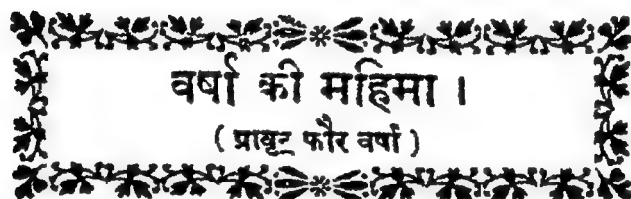 वर्षा की महिमा ।
( प्रावृट फौर वर्षा )